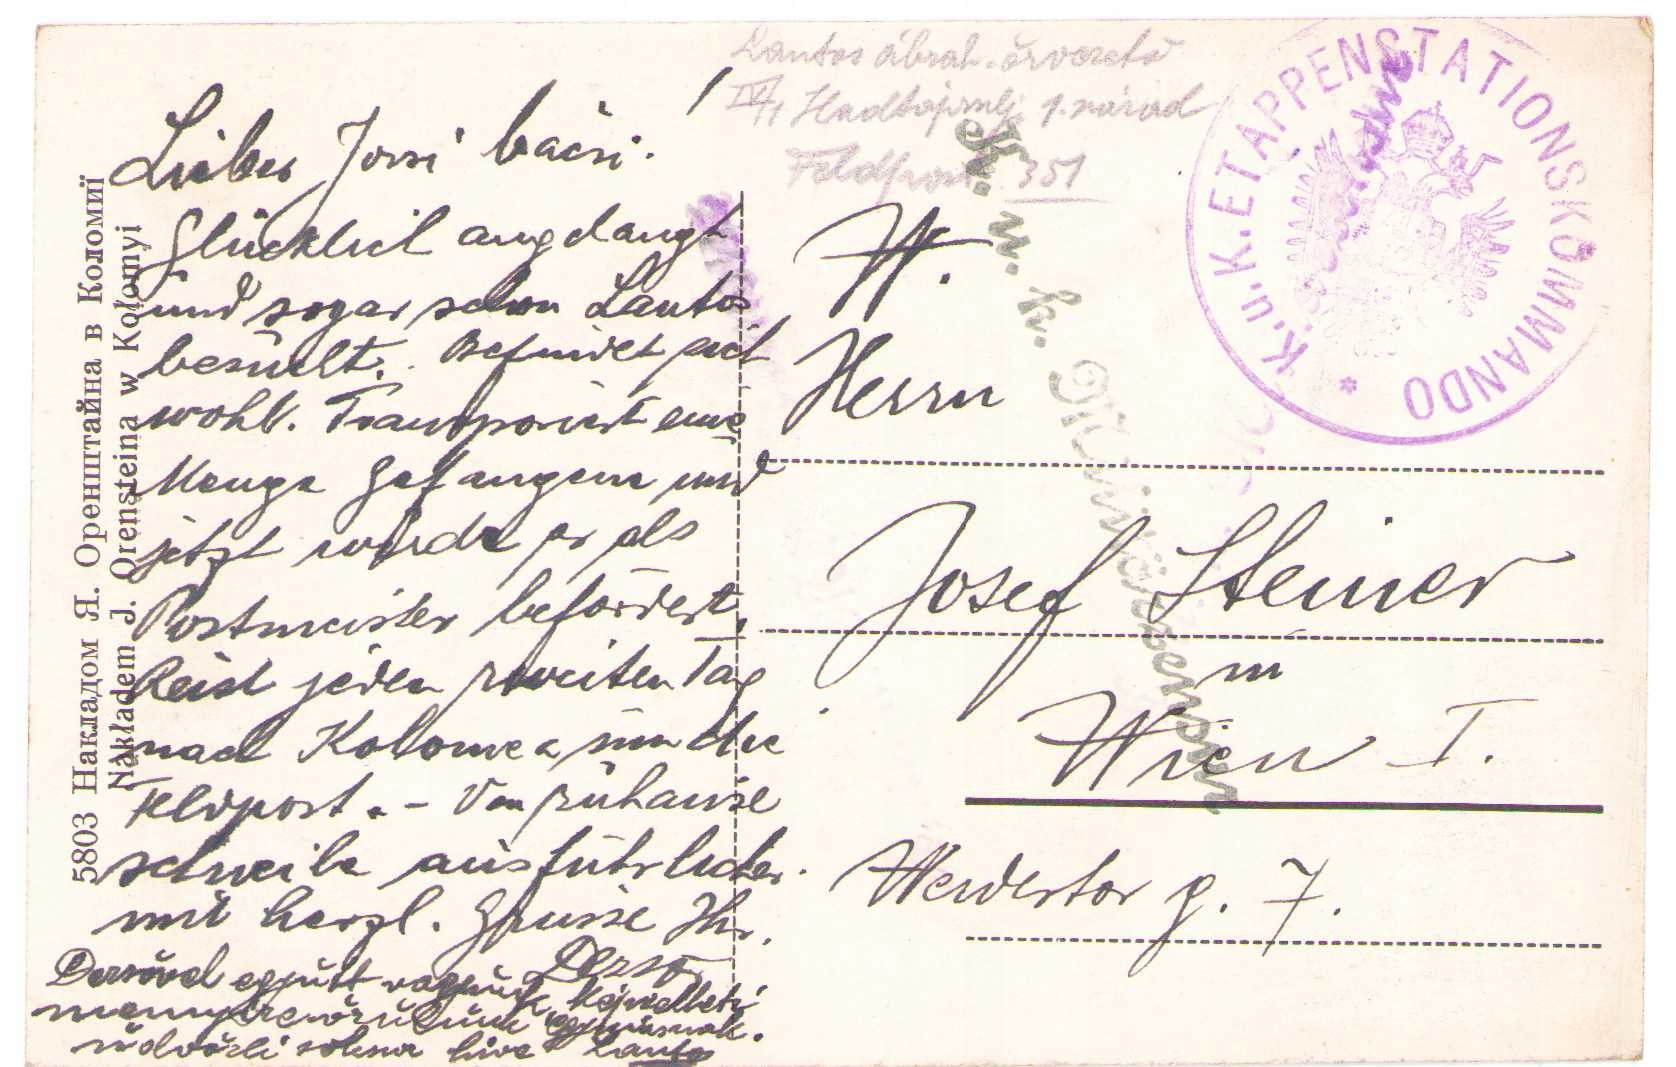 Lantos ábrah. őrvezető
IV/1 Hadtápzlj. 1. század
Feldpost 351
K.u.K. ETAPPENSTATIONSKOMMANDO
Lieber Jossi bácsi!
Glücklich angelangt
und sogar schon Lantos
besucht. Befindet sich
wohl. Transportirt eine
Menge Gefangene und
jetzt wurde er als
Postmeister befördert,
Reist jeden zweiten Tag
nach Kolomea um die
Feldpost. – Von zuhause
schreibe ausführlicher.
mit herzl. Grüsse Ihr.
Dezső
Dezsővel együtt vagyunk képzelheti
mennyire örülünk egymásnak.
üdvözli sokszor híve Lantos
W.
Herrn
Josef Steiner
in
Wien I.
Werdertor g. 7.
K. u. K. Militärzensur
5803 Накладом Я. Оренштайна в Коломиї
Nakładem J. Orensteina w Kołomyi